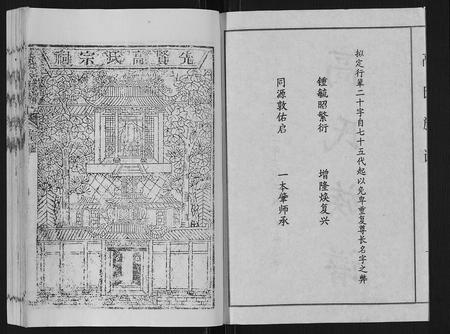 拟定行輩二十字自七十五代起以免卑重复尊长名字之弊
鍾毓昭繁衍 增隆焕复兴
同源敦佑启 一本肇师承
先賢高氏宗祠